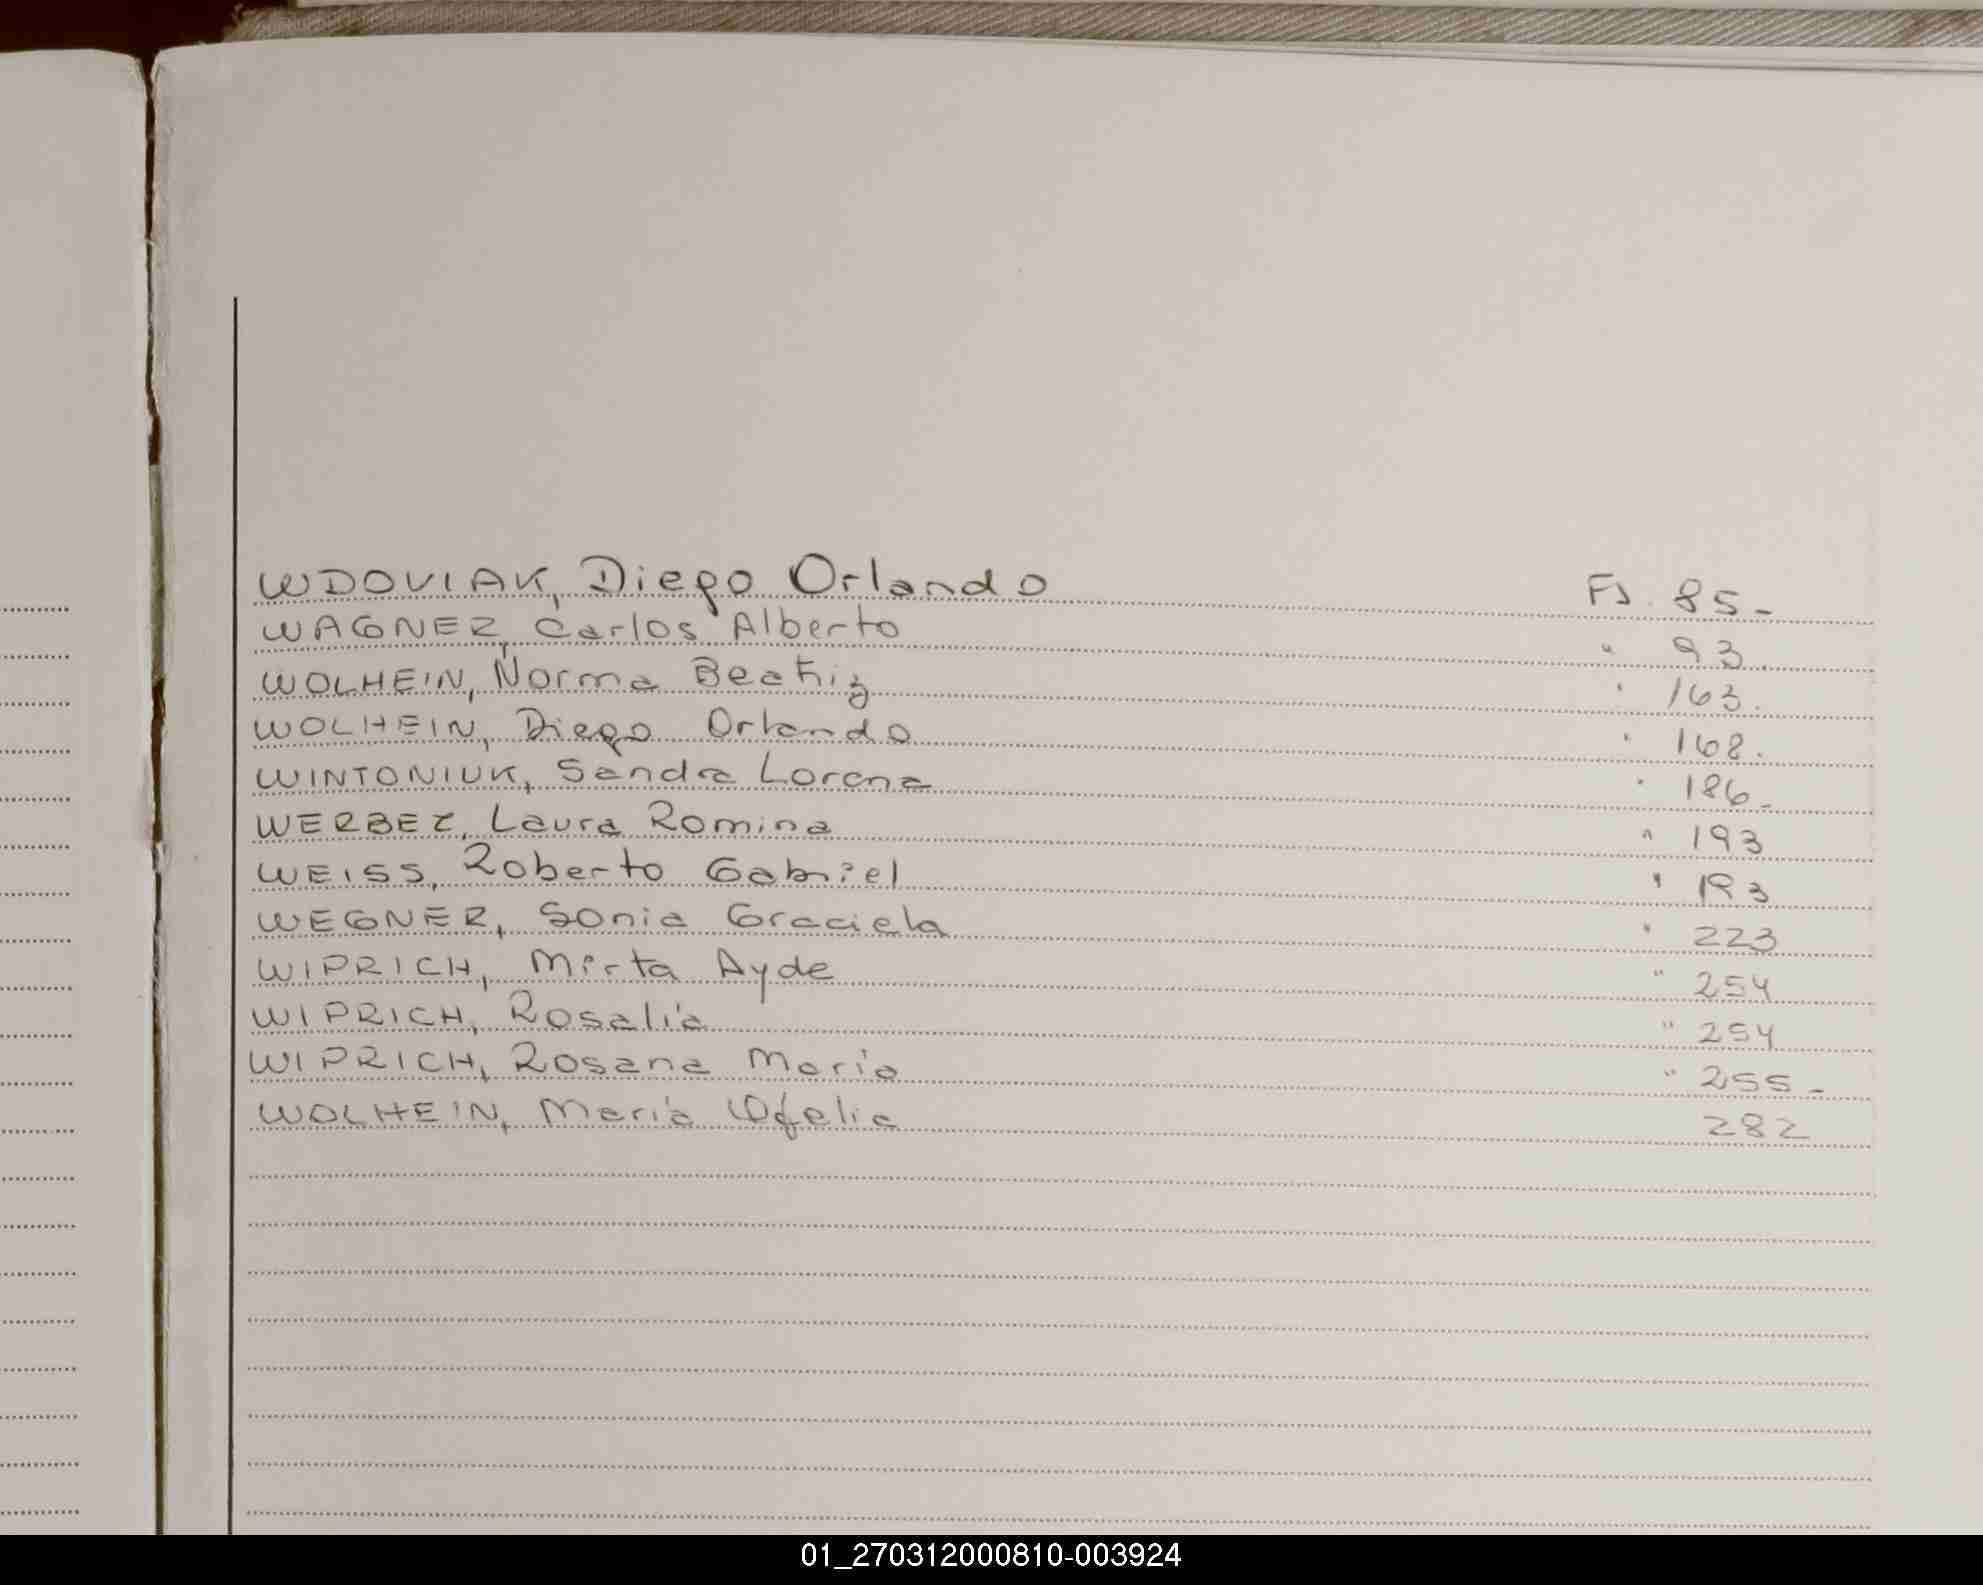 WDOVIAK, Diego Orlando Fs. 85-
WAGNER, Carlos Alberto " 93.
WOLHEIN, Norma Beatriz " 163.
WOLHEIN, Diego Orlando " 168.
WINTONIUK, Sandra Lorena " 186-
WERBEZ, Laura Romina " 193
WEISS, Roberto Gabriel " 193
WEGNER, Sonia Graciela " 223
WIPRICH, Mirta Ayde " 254
WIPRICH, Rosalia " 254
WIPRICH, Rosana Maria " 255-
WOLHEIN, Maria Ofelia 282
01_270312000810-003924